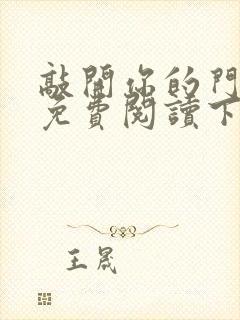 敲開你的門
免費閱讀下
王晟